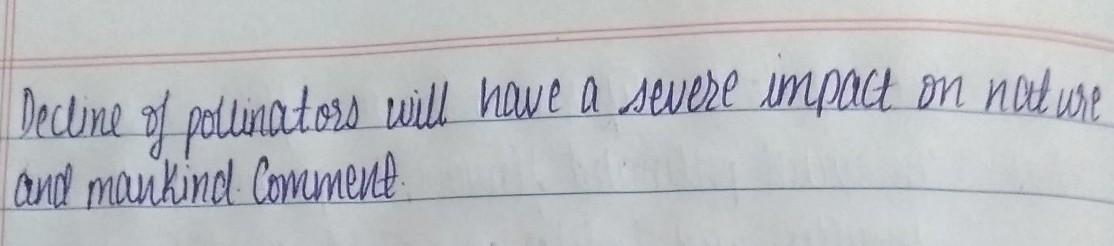 Decline of pollinators will have a severe impact on nature
and mankind. Comment.